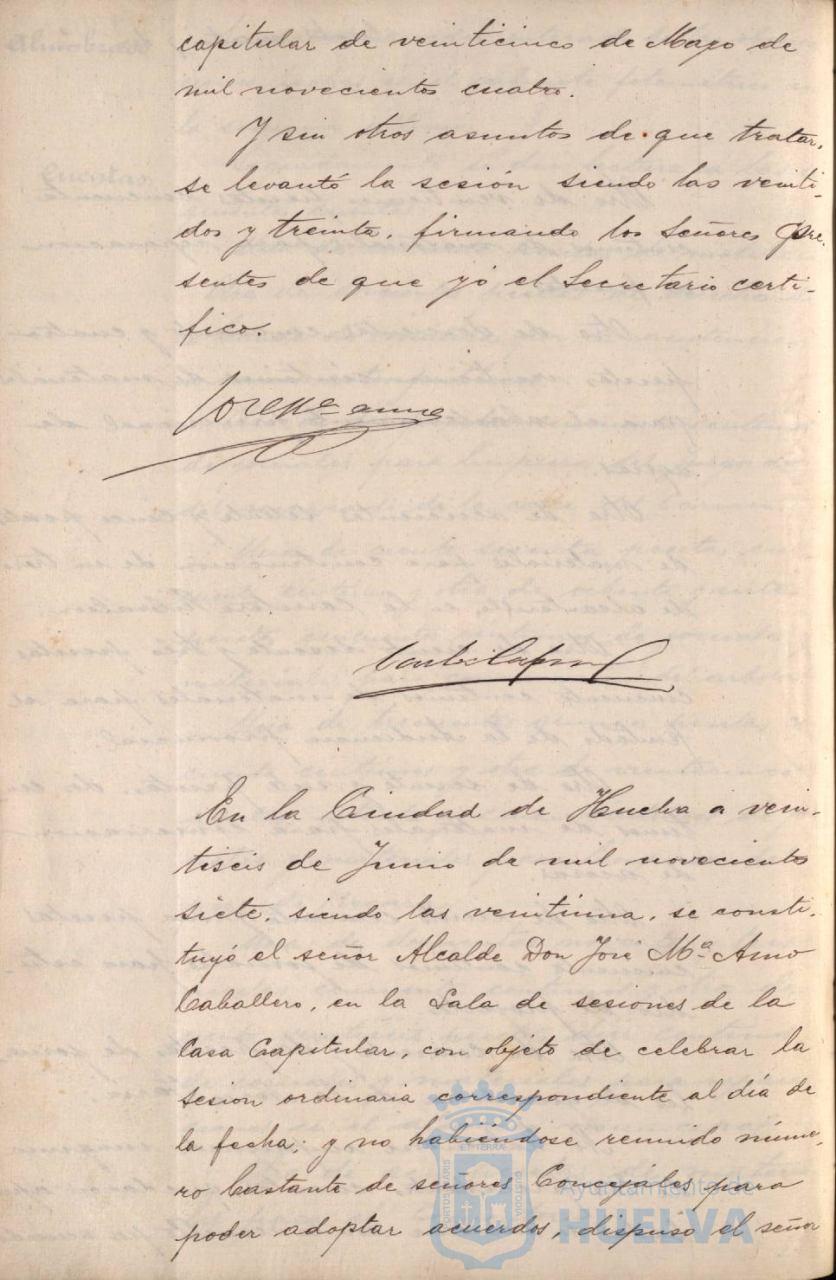 capitular de veinticinco de Mayo de
mil novecientos cuatro.
Y sin otros asuntos de que tratar,
se levantó la sesión siendo las veinti-
dos y treinta, firmando los Señores pre-
sentes de que yó el Secretario certi-
fico.
José Mª Amo
En la Ciudad de Huelva a vein-
tiseis de Junio de mil novecientos
siete, siendo las veintiuna, se consti-
tuyó el señor Alcalde Don José Mª Amo
Caballero, en la Sala de sesiones de la
Casa Capitular, con objeto de celebrar la
sesion ordinaria correspondiente al día de
la fecha; y no habiéndose reunido núme-
ro bastante de señores Concejáles para
poder adoptar acuerdos, dispuso el señor
Ayuntamiento de
HUELVA